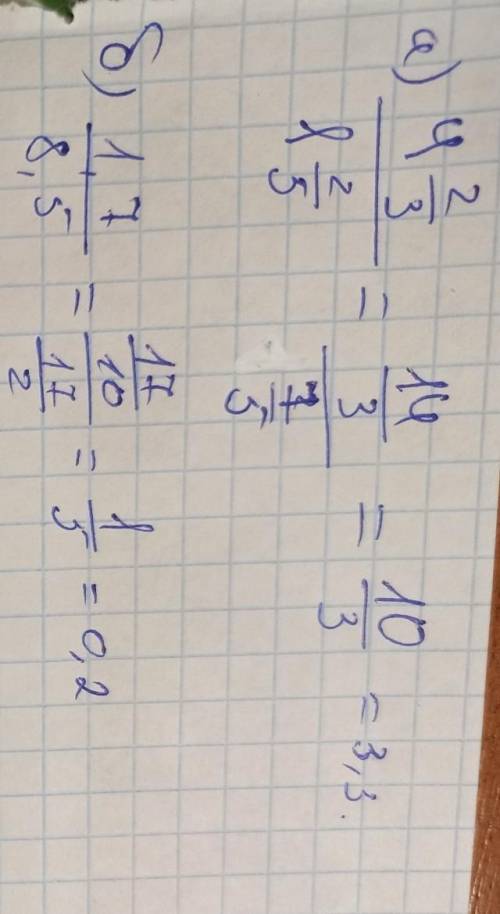 а) 4 2/3 / 1 2/5 = 14/3 / 7/5 = 10/3 = 3,3.
б) 1,7 / 8,5 = 17/10 / 17/2 = 1/5 = 0,2